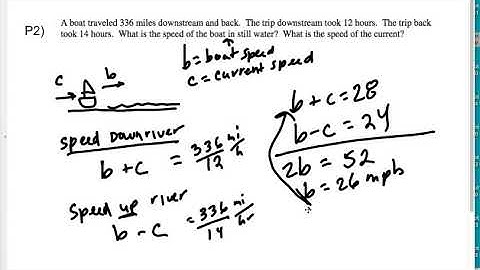 P2)
A boat traveled 336 miles downstream and back. The trip downstream took 12 hours. The trip back
took 14 hours. What is the speed of the boat in still water? What is the speed of the current?
b = boat speed
c = current speed
c
b
speed downriver
b + c = 336/12 mi/h
speed up river
b - c = 336/14 mi/hr
b + c = 28
b - c = 24
2b = 52
b = 26 mph